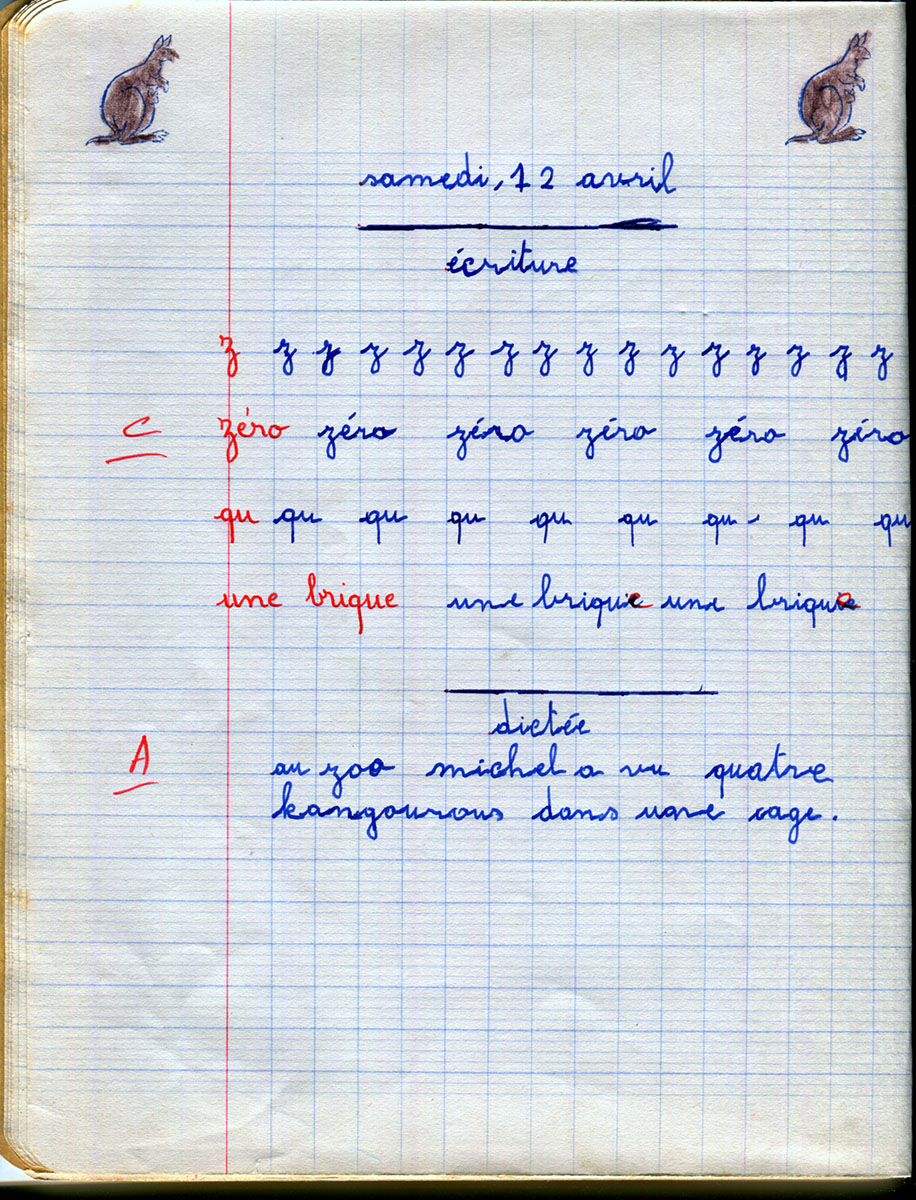 samedi, 12 avril
écriture
z z z z z z z z z z z z z z z z
C zéro zéro zéro zéro zéro zéro
qu qu qu qu qu qu qu - qu qu
une brique une brique une brique
dictée
A au zoo michel a vu quatre
kangourous dans une cage.